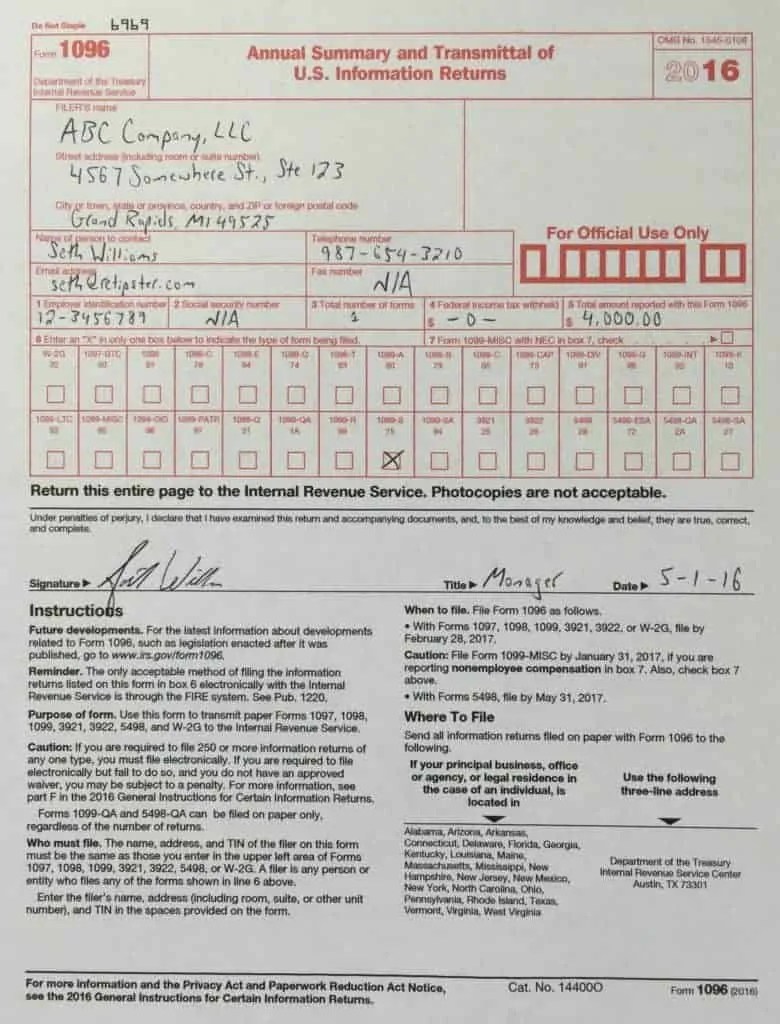 Do Not Staple 6969
Form 1096
Department of the Treasury
Internal Revenue Service
Annual Summary and Transmittal of
U.S. Information Returns
OMB No. 1545-0108
2016
FILER'S name
ABC Company, LLC
Street address (including room or suite number)
4567 Somewhere St., Ste 123
City or town, state or province, country, and ZIP or foreign postal code
Grand Rapids, MI 49525
Name of person to contact
Seth Williams
Telephone number
987-654-3210
Email address
seth@retipster.com
Fax number
N/A
For Official Use Only
1 Employer identification number
12-3456789
2 Social security number
N/A
3 Total number of forms
1
4 Federal income tax withheld
$ -0-
5 Total amount reported with this Form 1096
$ 4,000.00
6 Enter an "X" in only one box below to indicate the type of form being filed.
7 Form 1099-MISC with NEC in box 7, check
W-2G 1097-BTC 1098 1098-C 1098-E 1098-Q 1098-T 1099-A 1099-B 1099-C 1099-CAP 1099-DIV 1099-G 1099-INT 1099-K
1099-LTC 1099-MISC 1099-OID 1099-PATR 1099-Q 1099-QA 1099-R 1099-S 1099-SA 3921 3922 5498 5498-ESA 5498-QA 5498-SA
X
Return this entire page to the Internal Revenue Service. Photocopies are not acceptable.
Under penalties of perjury, I declare that I have examined this return and accompanying documents, and, to the best of my knowledge and belief, they are true, correct,
and complete.
Signature
Title Manager
Date 5-1-16
Instructions
Future developments. For the latest information about developments
related to Form 1096, such as legislation enacted after it was
published, go to www.irs.gov/form1096.
Reminder. The only acceptable method of filing the information
returns listed on this form in box 6 electronically with the Internal
Revenue Service is through the FIRE system. See Pub. 1220.
Purpose of form. Use this form to transmit paper Forms 1097, 1098,
1099, 3921, 3922, 5498, and W-2G to the Internal Revenue Service.
Caution: If you are required to file 250 or more information returns of
any one type, you must file electronically. If you are required to file
electronically but fail to do so, and you do not have an approved
waiver, you may be subject to a penalty. For more information, see
part F in the 2016 General Instructions for Certain Information Returns.
Forms 1099-QA and 5498-QA can be filed on paper only,
regardless of the number of returns.
Who must file. The name, address, and TIN of the filer on this form
must be the same as those you enter in the upper left area of Forms
1097, 1098, 1099, 3921, 3922, 5498, or W-2G. A filer is any person or
entity who files any of the forms shown in line 6 above.
Enter the filer's name, address (including room, suite, or other unit
number), and TIN in the spaces provided on the form.
When to file. File Form 1096 as follows.
• With Forms 1097, 1098, 1099, 3921, 3922, or W-2G, file by
February 28, 2017.
Caution: File Form 1099-MISC by January 31, 2017, if you are
reporting nonemployee compensation in box 7. Also, check box 7
above.
• With Forms 5498, file by May 31, 2017.
Where To File
Send all information returns filed on paper with Form 1096 to the
following.
If your principal business, office
or agency, or legal residence in
the case of an individual, is
located in
Use the following
three-line address
Alabama, Arizona, Arkansas,
Connecticut, Delaware, Florida, Georgia,
Kentucky, Louisiana, Maine,
Massachusetts, Mississippi, New
Hampshire, New Jersey, New Mexico,
New York, North Carolina, Ohio,
Pennsylvania, Rhode Island, Texas,
Vermont, Virginia, West Virginia
Department of the Treasury
Internal Revenue Service Center
Austin, TX 73301
For more information and the Privacy Act and Paperwork Reduction Act Notice,
see the 2016 General Instructions for Certain Information Returns.
Cat. No. 14400O
Form 1096 (2016)